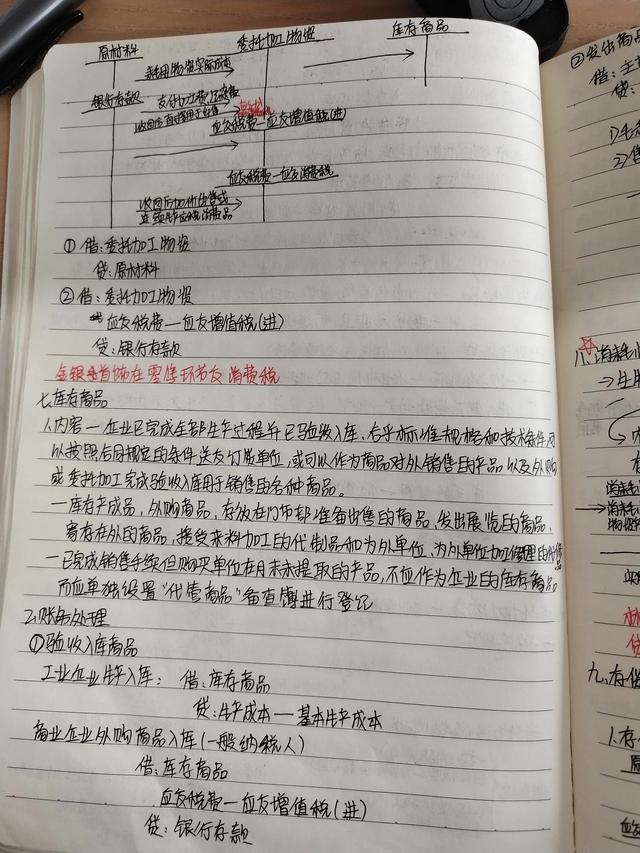 原材料 委托加工物资 库存商品
耗用物资实际成本
银行存款 支付加工费、运杂费
收回后直接用于出售
应交税费—应交增值税(进)
应交税费—应交消费税
收回后加价出售或
连续生产应税消费品
① 借:委托加工物资
贷:原材料
② 借:委托加工物资
应交税费—应交增值税(进)
贷:银行存款
金银首饰在零售环节交消费税
七、库存商品
1.内容—企业已完成全部生产过程并已验收入库、合乎标准规格和技术条件,可
以按照合同规定的条件送交订货单位,或可以作为商品对外销售的产品以及外购
或委托加工完成验收入库用于销售的各种商品。
—库存产成品,外购商品,存放在门市部准备出售的商品,发出展览的商品,
寄存在外的商品,接受来料加工的代制品和为外单位、为外单位加工修理的代修品
—已完成销售手续但购买单位在月末未提取的产品,不应作为企业的库存商品,
而应单独设置“代管商品”备查簿进行登记
2.账务处理
①验收入库商品
工业企业生产入库: 借:库存商品
贷:生产成本—基本生产成本
商业企业外购商品入库(一般纳税人)
借:库存商品
应交税费—应交增值税(进)
贷:银行存款
②发出商品
借:主
贷:
1)
2)
八、消耗
→生
九、存
1.存